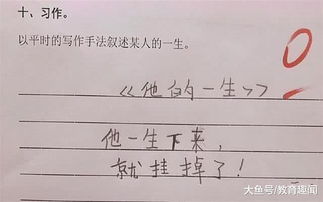 十、习作。
以平时的写作手法叙述某人的一生。
《他的一生》
他一生下来，
就挂掉了！
大鱼号/教育趣闻